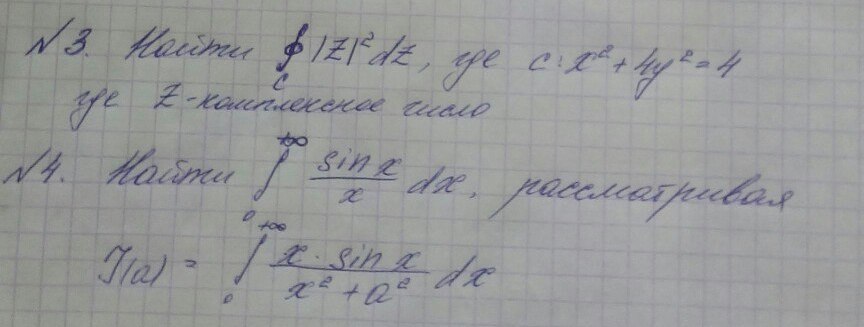 №3. Найти ∮_C |Z|² dZ, где C: x² + 4y² = 4
где Z - комплексное число
№4. Найти ∫_0^{+∞} (sin x / x) dx, рассматривая
J(a) = ∫_0^{+∞} (x · sin x / (x² + a²)) dx